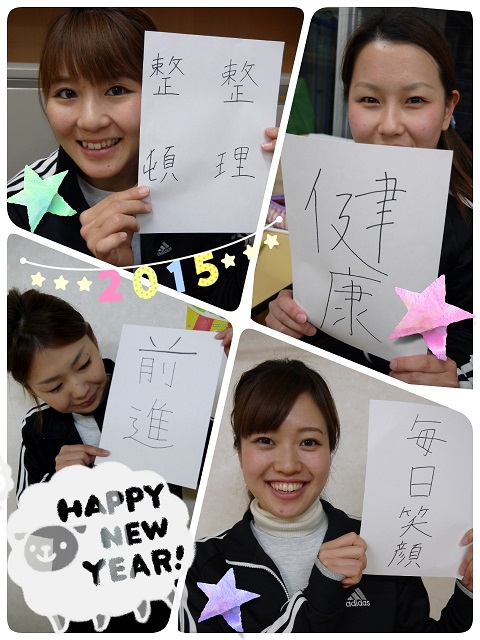 整理
整頓
健康
2015
前進
毎日笑顔
HAPPY
NEW
YEAR!
adidas